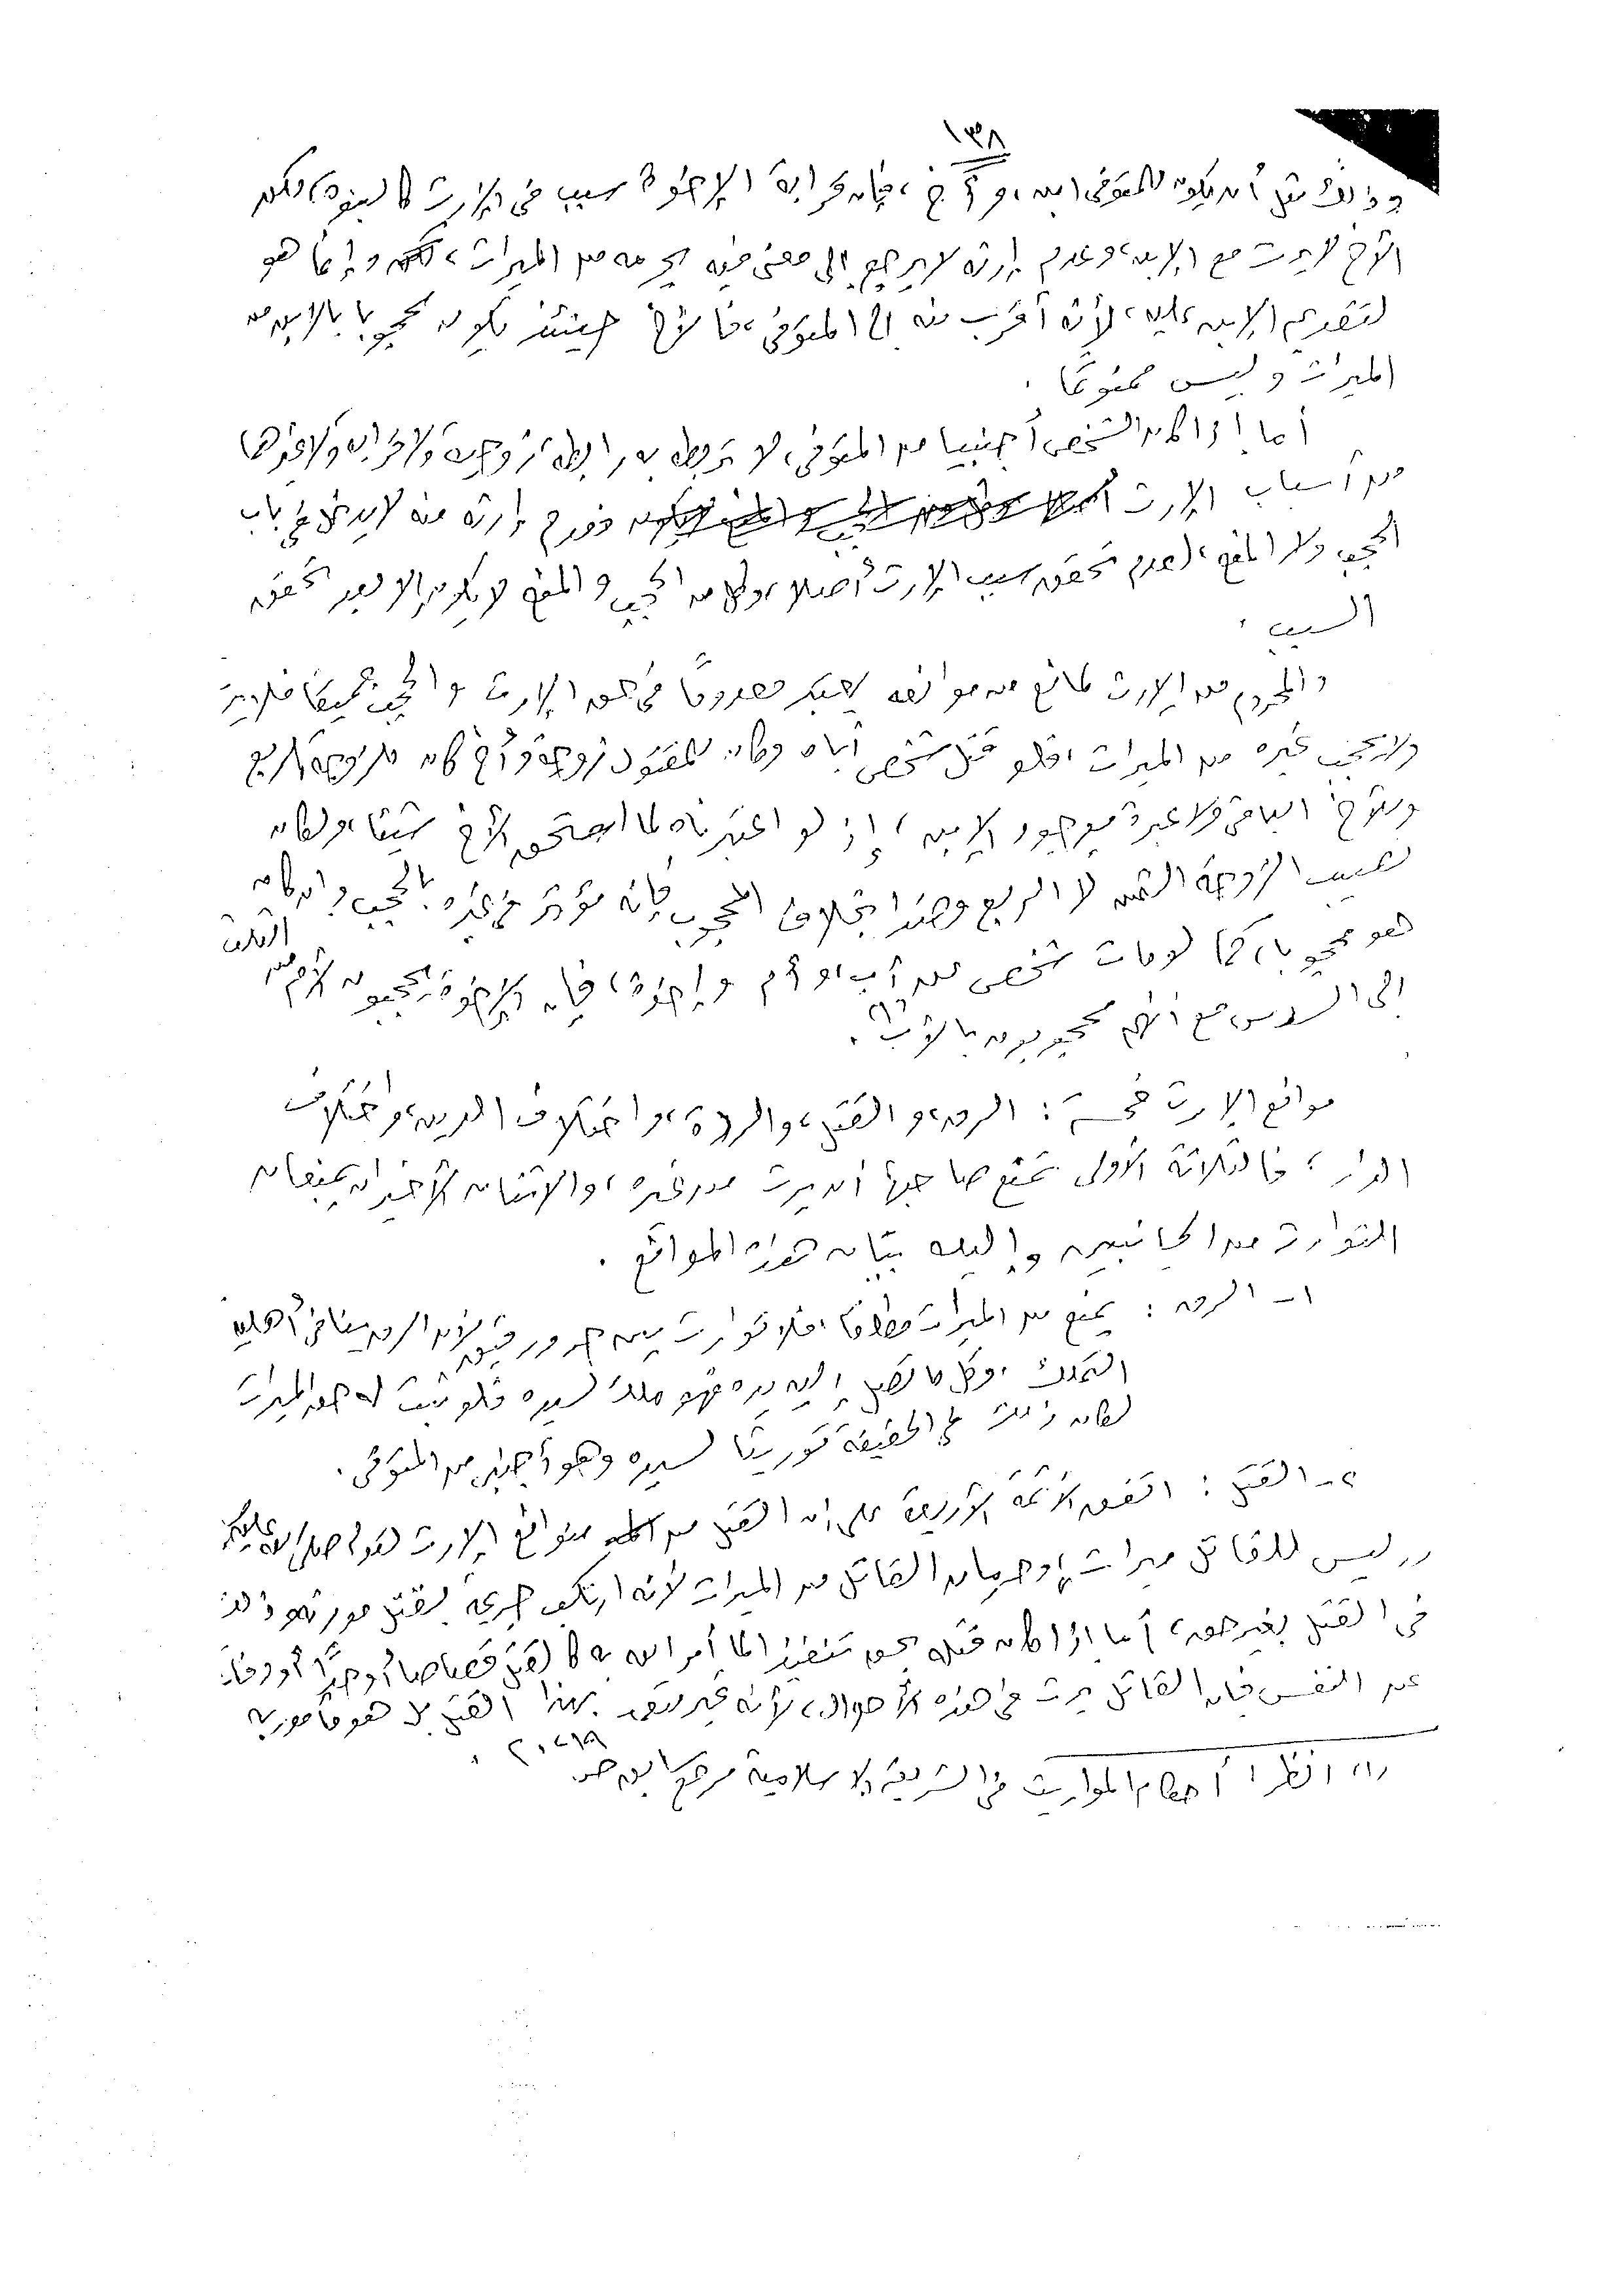 ١٣٨
وذلك مثل أن يكون للمتوفى ابن، وأخ، فإن قرابة الإخوة سبب فى الإرث كالبنوة، لكن
الأخ لا يرث مع الابن، وعدم إرثه لا يرجع إلى معنى فيه يحرمه من الميراث، وإنما هو
لتقديم الابن عليه، لأنه أقرب منه الى المتوفى، فالأخ حينئذ يكون محجوبا بالابن من
الميراث وليس ممنوعًا .
أما إذا كان الشخص أجنبيا من المتوفى، لا تربطه به رابطة زوجية ولا قرابة ولا غيرها
من أسباب الإرث فعدم إرثه منه لا يدخل فى باب
الحجب ولا المنع، لعدم تحقق سبب الإرث أصلا، وكل من الحجب والمنع لا يكون إلا بعد تحقق
السبب .
والمحروم من الإرث لمانع من موانعه يعتبر معدومًا فى حق الإرث والحجب جميعًا فلا يرث
ولا يحجب غيره من الميراث، فلو قتل شخص أباه وكان للمقتول زوجة وأخ كان للزوجة الربع
وللأخ الباقى ولا عبرة بوجود الابن، إذ لو اعتبرناه لما استحق الأخ شيئا، ولكان
نصيب الزوجة الثمن لا الربع وهذا بخلاف المحجوب فإنه يؤثر فى غيره بالحجب وإن كان
هو محجوبا، كما لو مات شخص عن أب، وأم وإخوة، فإن الإخوة يحجبون الأم من الثلث
إلى السدس مع أنهم محجوبون بالأب (١) .
موانع الإرث خمسة : الرق، والقتل، والردة، واختلاف الدين، واختلاف
الدار، فالثلاثة الأولى تمنع صاحبها أن يرث من غيره، والاثنان الأخيران يمنعان
التوارث من الجانبين وإليك بيان هذه الموانع .
١ - الرق : يمنع من الميراث مطلقًا، فلا توارث بين حر ورقيق لأن الرق ينافى أهلية
التملك، وكل ما تصل إليه يده فهو ملك لسيده فلو ثبت له حق الميراث
لكان ذلك فى الحقيقة توريثًا لسيده وهو أجنبى من المتوفى .
٢ - القتل : اتفق الأئمة الأربعة على أن القتل من موانع الإرث لقوله صلى الله عليه وسلم
"ليس للقاتل ميراث" وحرمان القاتل من الميراث لأنه ارتكب جريمة بقتل مورثه وذلك
فى القتل بغير حق، أما إذا كان قتله بحق تنفيذا لما أمر الله به كالقتل قصاصا أو حدًا أو دفاعا
عن النفس فإن القاتل يرث فى هذه الأحوال، لأنه غير متعد بهذا القتل بل هو مأمور به
(١) انظر : أحكام المواريث فى الشريعة الإسلامية مرجع سابق ص